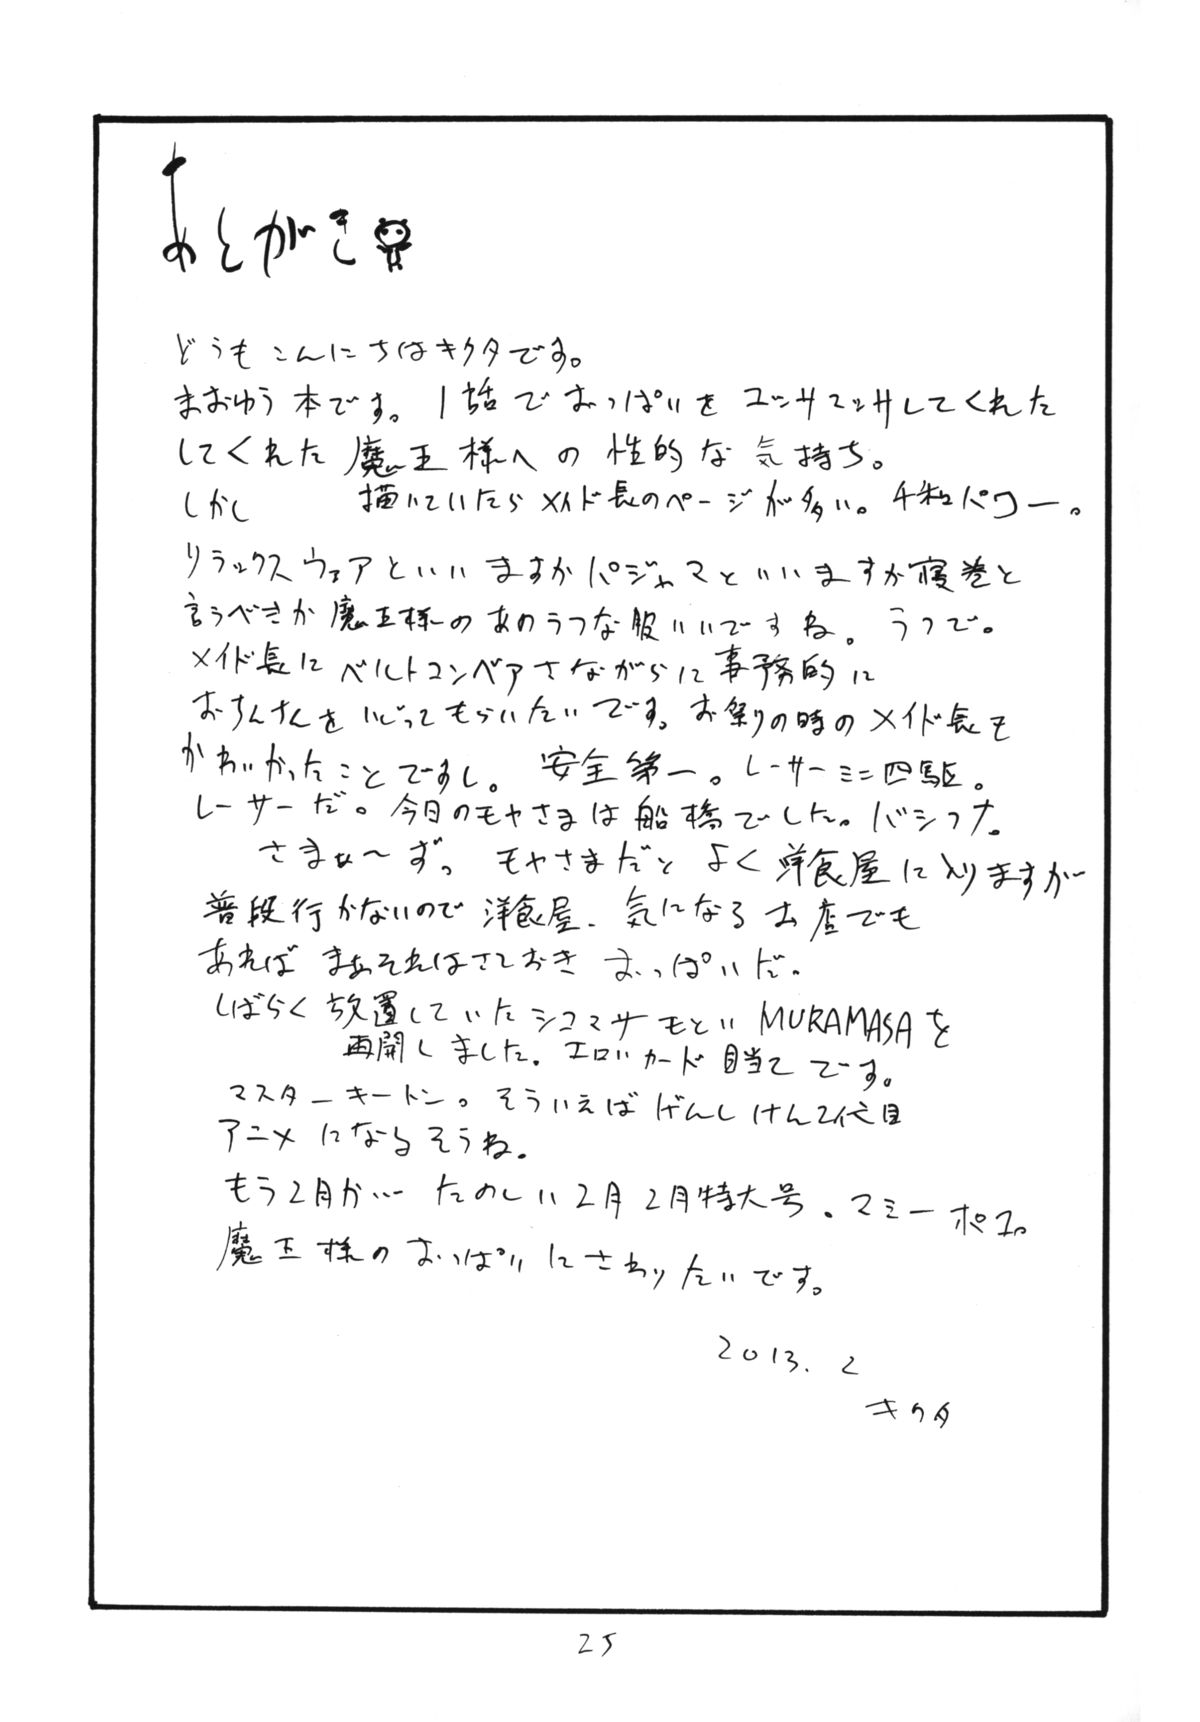 あとがき
どうもこんにちはキクタです。
まおゆう本です。1話でおっぱいをユッサユッサしてくれた
してくれた魔王様への性的な気持ち。
しかし 描いていたらメイド長のページが多い。千和パワー。
リラックスウェアといいますかパジャマといいますか寝巻と
言うべきか魔王様のあのうつな服いいですね。うつで。
メイド長にベルトコンベアさながらに事務的に
おちんちんをいじってもらいたいです。お祭りの時のメイド長も
かわいかったことですし。安全第一。レーサーミニ四駆。
レーサーだ。今日のモヤさまは船橋でした。バシフナ。
さまぁ〜ず。モヤさまだとよく洋食屋に入りますが
普段行かないので洋食屋、気になるお店でも
あれば まぁそれはさておき おっぱいだ。
しばらく放置していたシコマサもといMURAMASAを
再開しました。エロいカード目当てです。
マスターキートン。そういえばげんしけん2代目
アニメになるそうね。
もう2月か… たのしい2月2月特大号。マミーポコ。
魔王様のおっぱいにさわりたいです。
2013.2
キクタ
25